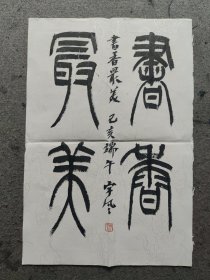 書香
最美
書香最美 己亥端午 宇风